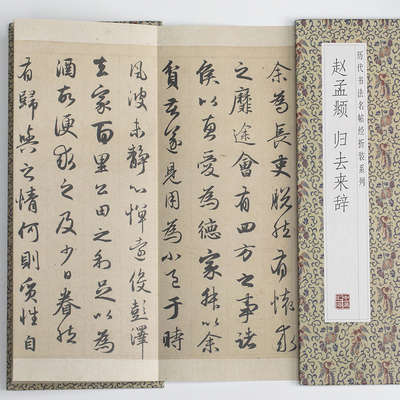 历代书法名帖经折装系列
赵孟頫 归去来辞
余為長吏脱然有懷求
之靡途會有四方之事諸
侯以惠愛為德家叔以余
貧苦遂見用為小邑于時
風波未静心憚遠役彭澤
去家百里公田之利足以為
酒故便求之及少日眷然
有歸與之情何則質性自